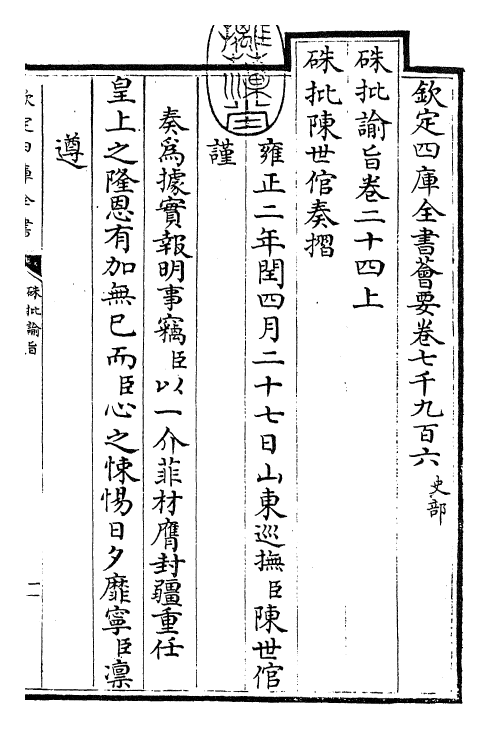 欽定四庫全書薈要卷七千九百六 史部
硃批諭旨卷二十四上
硃批陳世倌奏摺
雍正二年閏四月二十七日山東巡撫臣陳世倌
謹
奏爲據實報明事竊臣以一介菲材膺封疆重任
皇上之隆恩有加無已而臣心之悚惕日夕靡寧臣凜
遵
欽定四庫全書
硃批諭旨
一